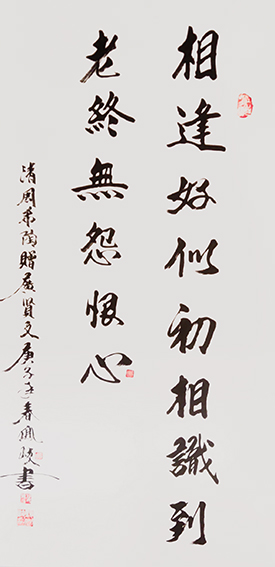 相逢好似初相識到
老終無怨恨心
清周希陶贈廣賢文庚子春書